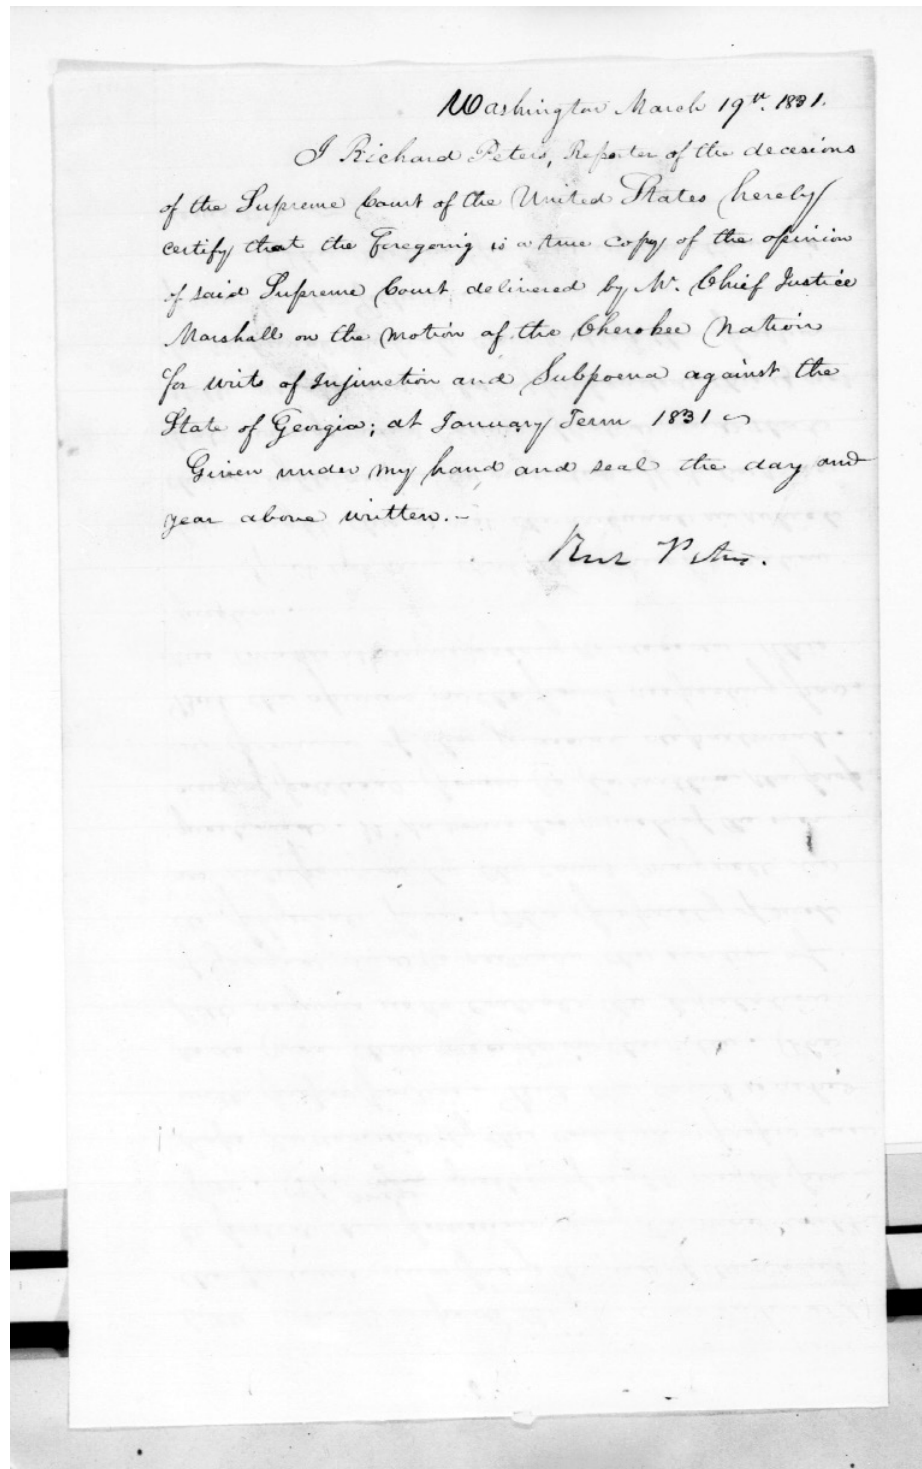 Washington March 19th. 1831.
I Richard Peters, Reporter of the decesions
of the Supreme Court of the United States hereby
certify that the foregoing is a true copy of the opinion
of said Supreme Court delivered by Mr. Chief Justice
Marshall on the motion of the Cherokee Nation
for writs of Injunction and Subpoena against the
State of Georgia; at January Term 1831
Given under my hand and seal the day and
year above written.
Rich Peters.